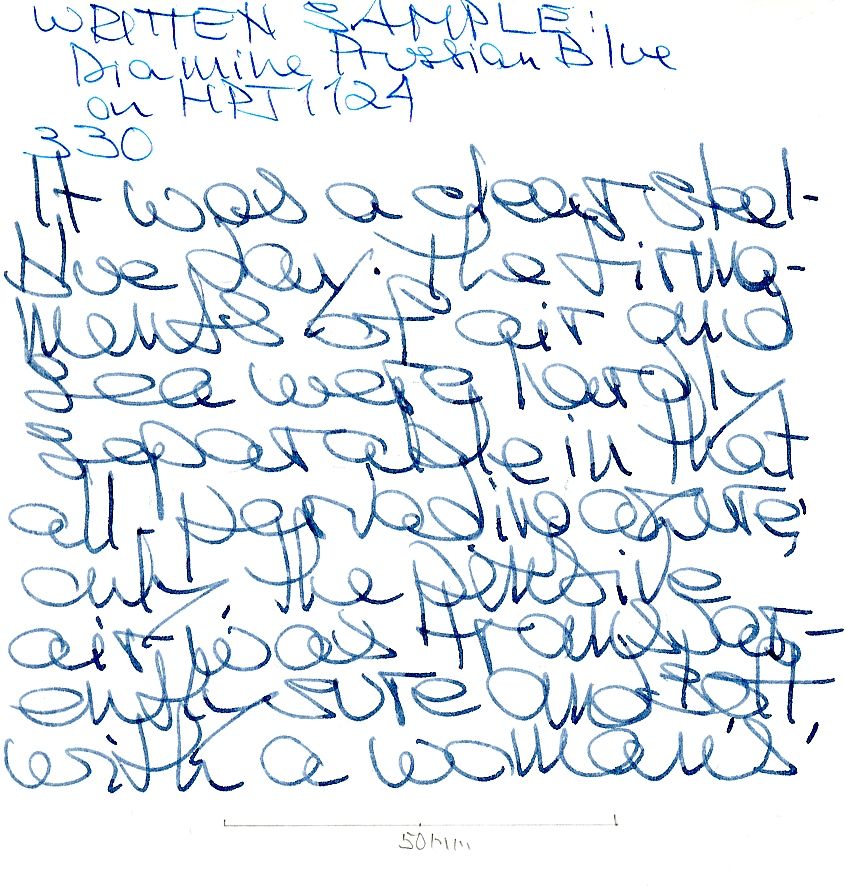 WRITTEN SAMPLE:
Diamine Prussian Blue
on HPJ1124
330
It was a clear steel-
blue day. The firma-
ments of air and
sea were hardly
separable in that
all-pervading azure;
only, the pensive
air was transpar-
ently pure and soft,
with a woman's
50mm